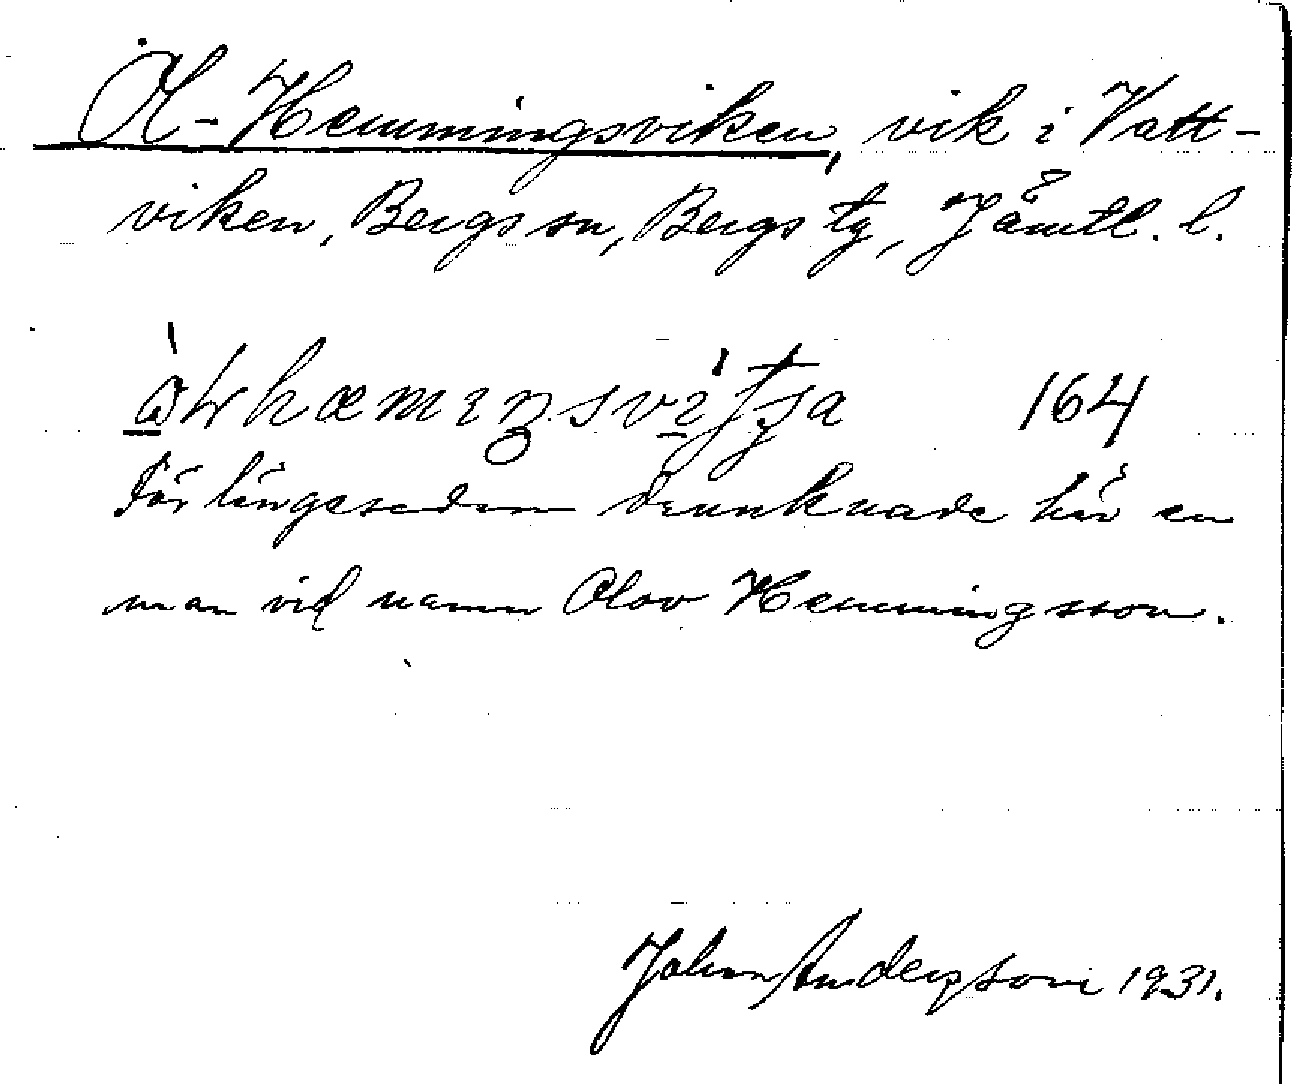 Öl-Hemmingsviken, vik i Vatt-
viken, Bergs sn, Bergs tg, Jämtl. l.
164
För längesedan drunknade här en
man vid namn Olov Hemmingsson.
Johan Anderson 1931.